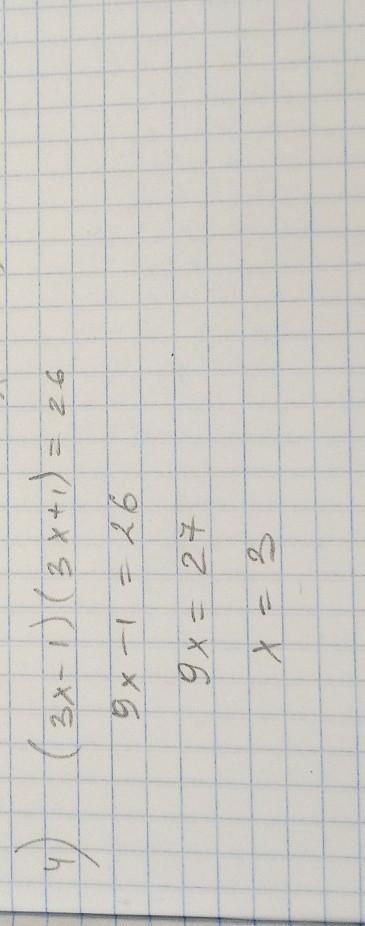 4) (3x-1)(3x+1) = 26
9x-1 = 26
9x = 27
x = 3